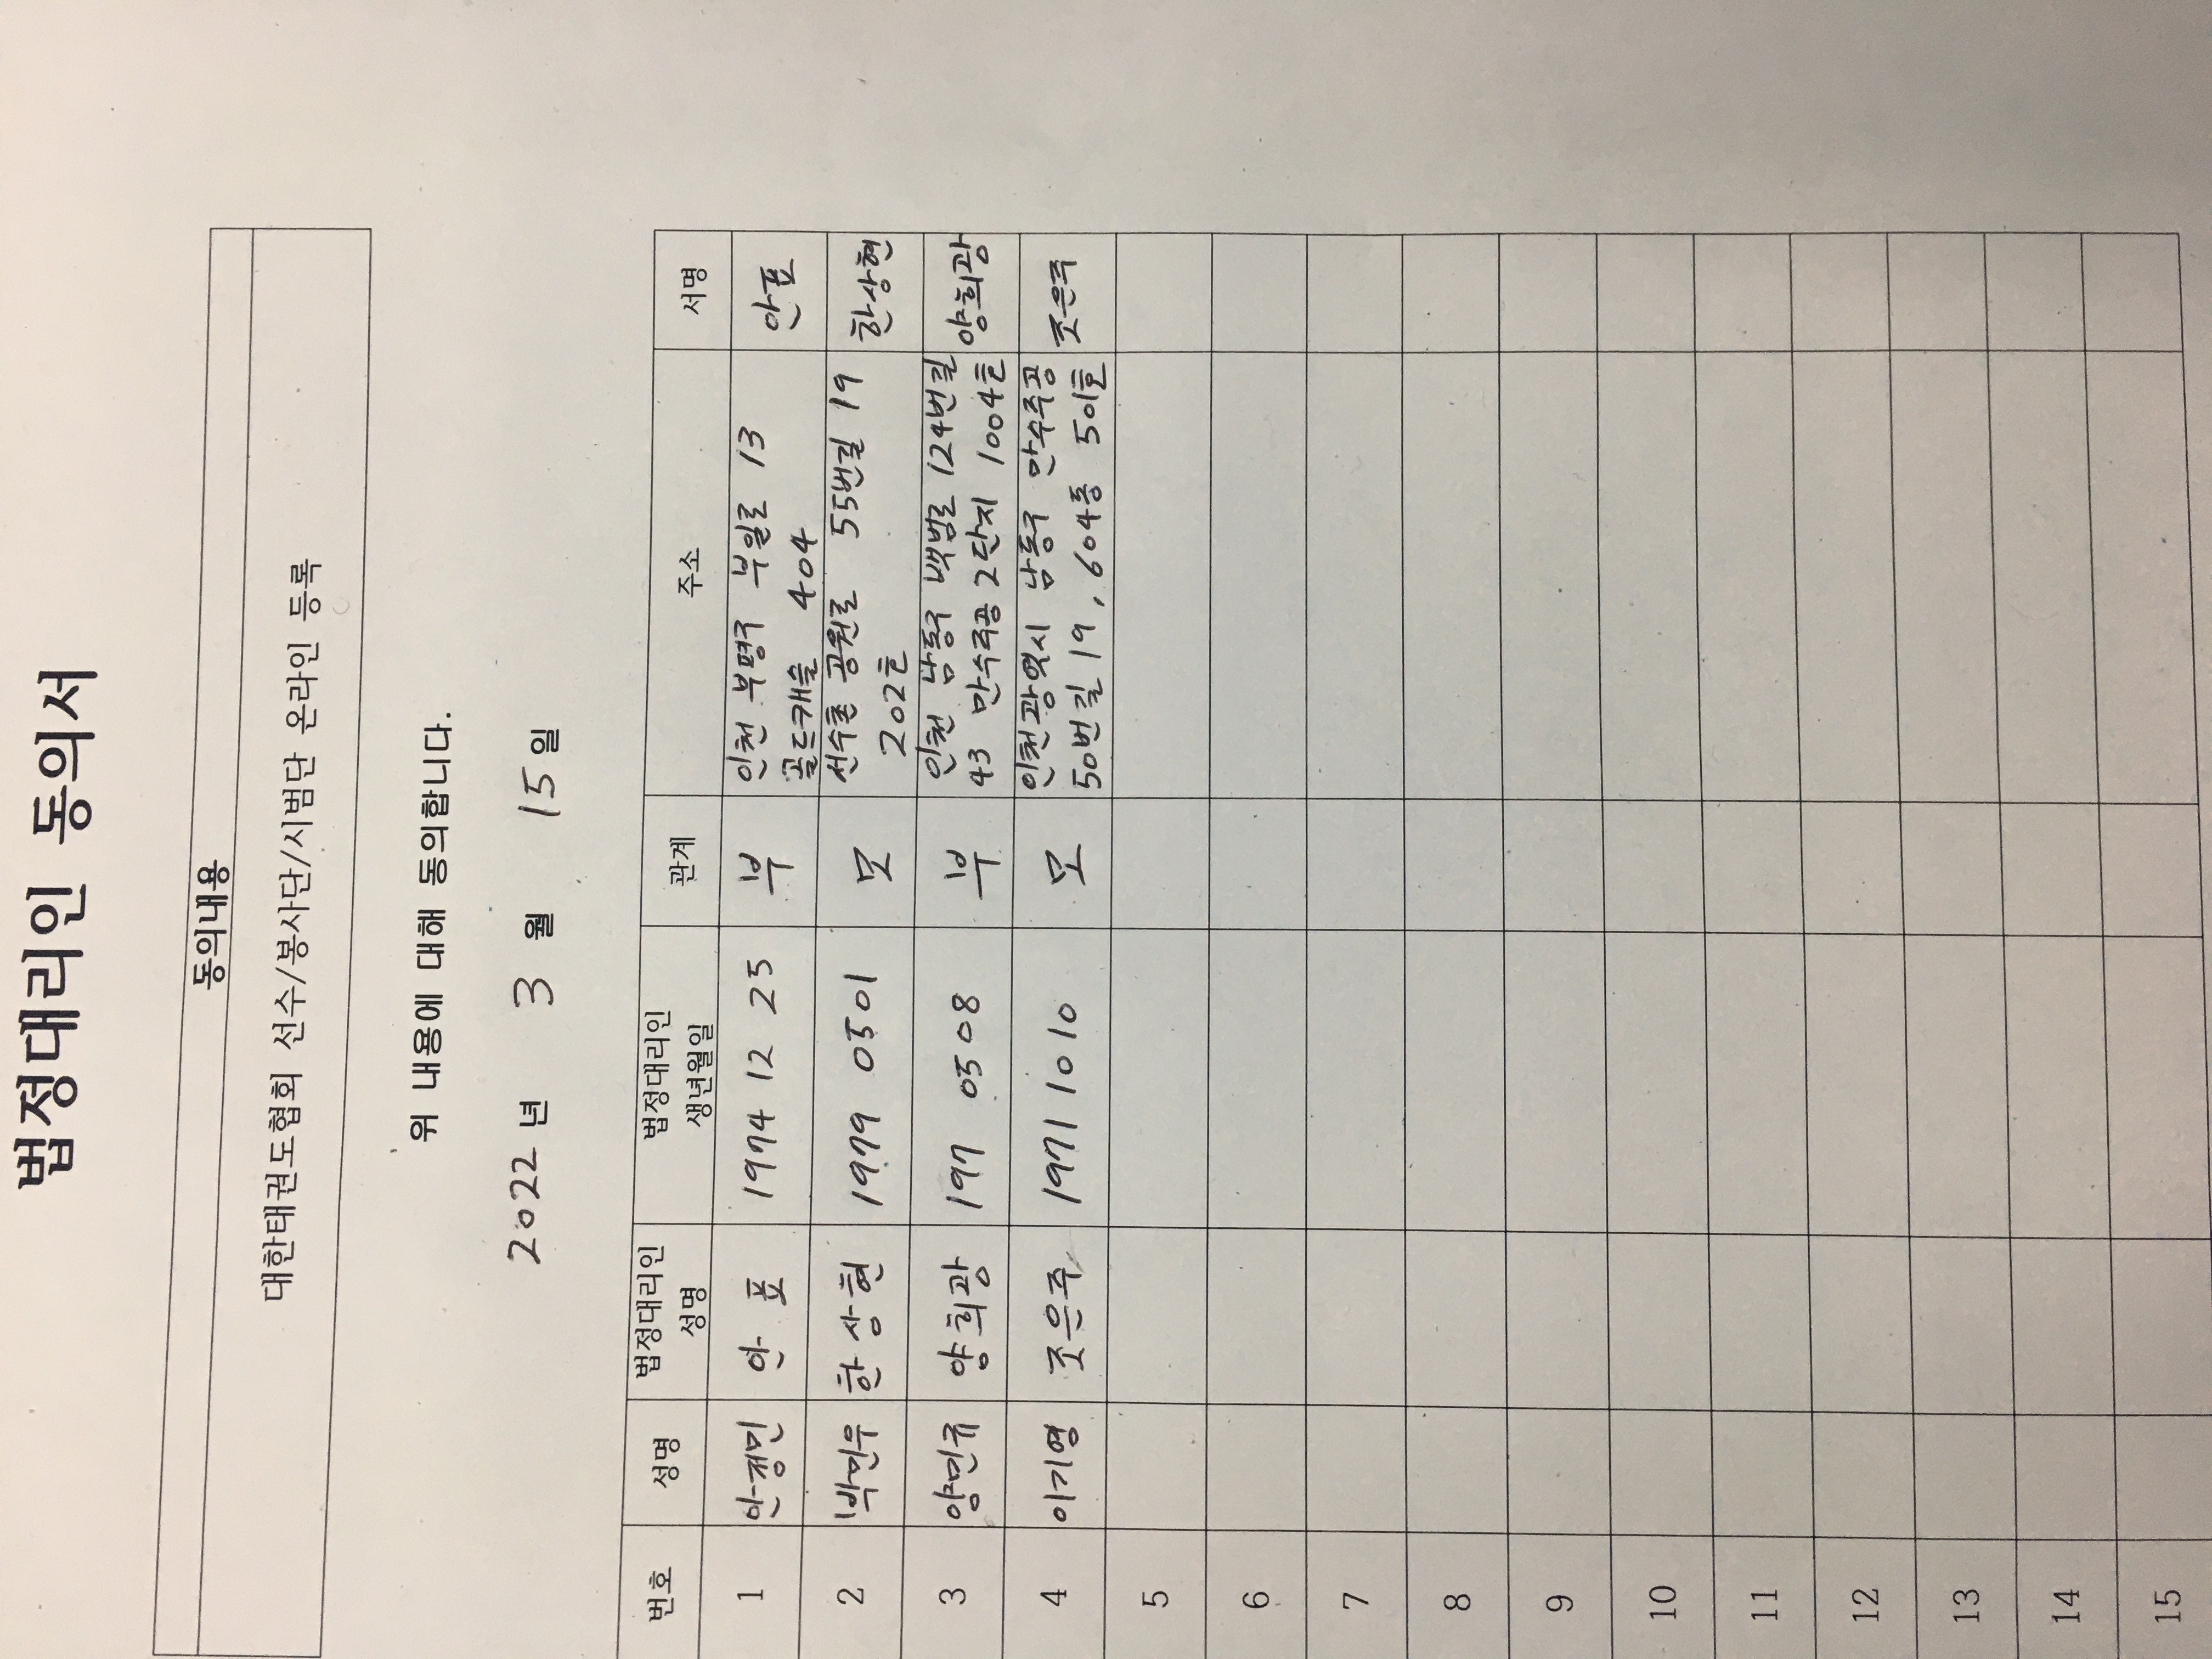 법정대리인 동의서
동의내용
대한태권도협회 선수/봉사단/시범단 온라인 등록
위 내용에 대해 동의합니다.
2022 년 3 월 15 일
번호 성명 법정대리인 성명 법정대리인 생년월일 관계 주소 서명
1 안정민 안 표 1974 12 25 부 인천 부평구 부일로 13 안표
골드캐슬 404
2 박민우 한상현 1979 0501 모 선수촌 공원로 55번길 19 한상현
202호
3 양민규 양희광 197 0508 부 인천 남동구 백범로 124번길 양희광
43 만수주공 2단지 1004호
4 이기영 조은주 1971 1010 모 인천광역시 남동구 만수주공 조은주
50번길 19, 604동 501호
5
6
7
8
9
10
11
12
13
14
15